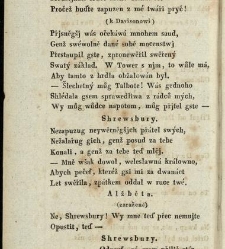 Pročež buďte zapuzen z mé tváři pryč!
(k Davisonowi)
Přísnégssj wás očekáwá mnohem saud,
Genž swěwolně dané sobě mocenstwj
Přestaupil gste, zpronewěřil swěřený
Swatý základ. W Tower s njm, to wůle má,
Aby tamto z hrdla obžalowán byl.
— Šlechetný můg Talbote! Wás gednoho
Shledala gsem sprawedliwa z rádců mých,
Wy můg wůdce napotom, můg přjtel gste —
Shrewsbury.
Nezapuzug neywěrněgšjch přátel swých,
Nežaluřug gich, genž posud za tebe
Konali, a genž za tebe teď mlčj.
— Mně wšak dowol, welesławná králowno,
Abych pečeť, kterůž gsi mi za dwanáct
Let swěřila, zpátkem oddal w ruce twé.
Alžběta.
(zaražena)
Né, Shrewsbury! Wy mne teď přec nemůgte
Opustit, teď —
Shrewsbury.